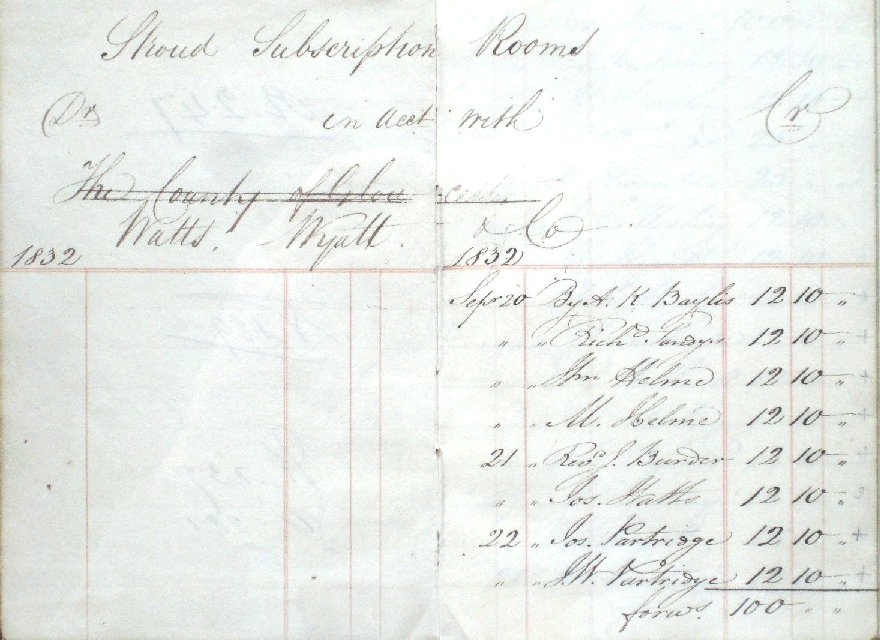 Stroud Subscription Rooms
Dr in acct with Cr
The County of Gloucester
Watts. Wyatt. & Co
1832 1832
Sepr 20 By A. K Baylis 12 10 "
" " Richd Sandys 12 10 "
" " Wm Helme 12 10 "
" " M. Helme 12 10 "
21 " Revd J. Burder 12 10 "
" " Jos. Watts 12 10 "
22 " Jos. Partridge 12 10 "
" " J. W. Partridge 12 10 "
forwd. 100 " "